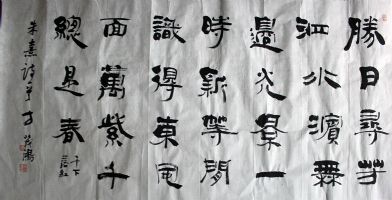 勝日尋芳
泗水濱無
邊光景一
時新等閒
識得東風
面萬紫千
總是春
千下
落紅
朱熹詩